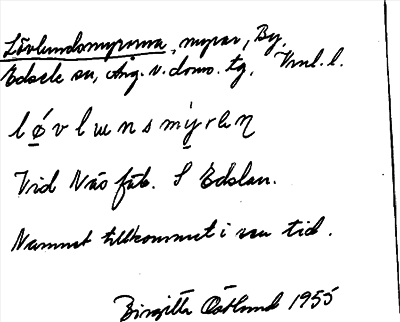 Lövlundsmyrarna, myrar, By,
Edsele sn, Ång. v. doms. tg, Vnl. l.
l ǿ v l ɯ n s m y̌ r a ɳ
Vid Näs fäb. S Edslan.
Namnet tillkommet i sen tid.
Birgitta Östlund 1955